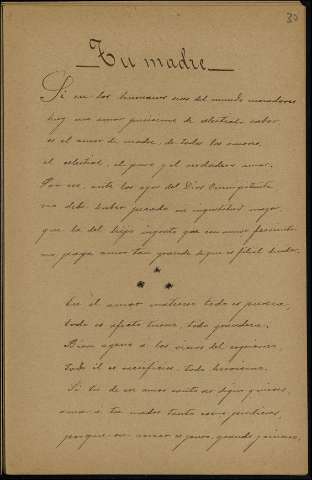 30
Tu madre
Si en los humanos seres del mundo moradores
hay un amor purísimo de celestial sabor
es el amor de madre, de todos los amores,
el celestial, el puro y el verdadero amor.
Por eso, ante los ojos del Dios Omnipotente
no debe haber pecado ni ingratitud mayor
que la del hijo ingrato que con amor
no paga amor tan grande
* * *
En el amor materno todo es pureza,
todo es afecto tierno, todo grandeza;
Bien ageno á los vicios del egoismo,
todo él es sacrificio, todo heroismo.
Si tú de un amor santo ser digno quieres,
ama á tu madre tanto como pudieres,
porque su amor es puro, grande y